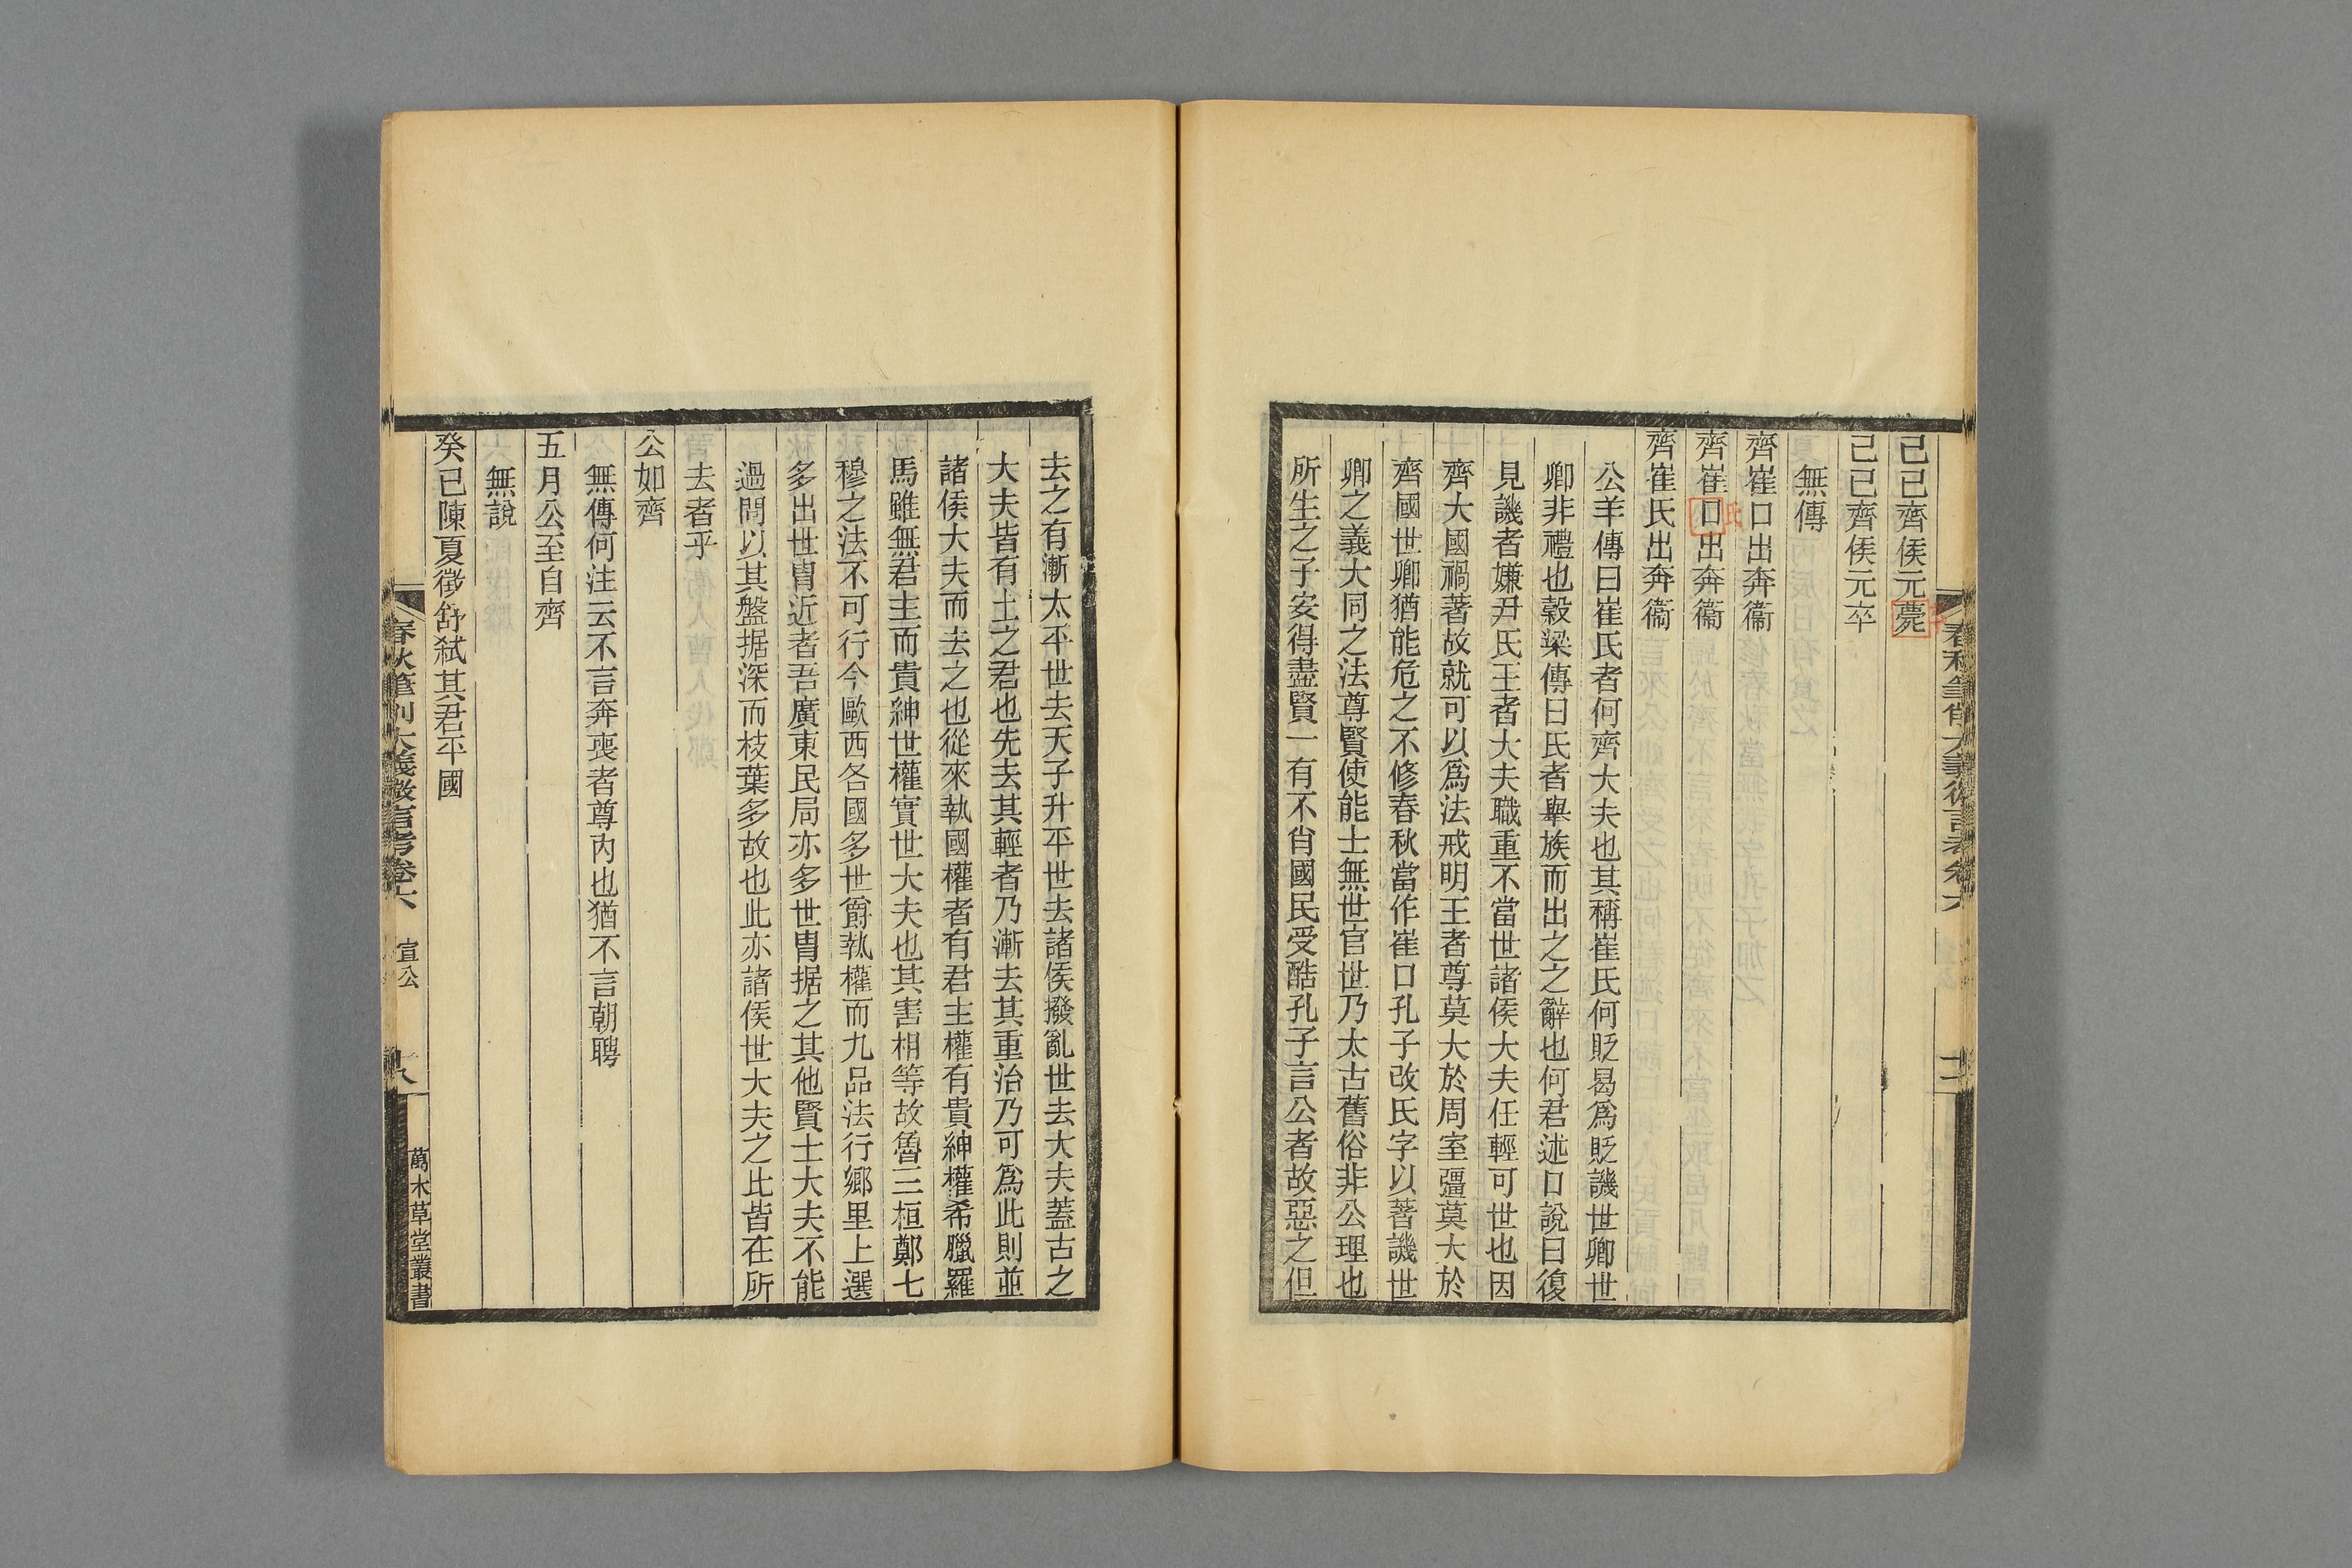 己巳齊侯元薨
己巳齊侯元卒
無傳
齊崔口出奔衞
齊崔口出奔衞
氏
齊崔氏出奔衞
公羊傳曰崔氏者何齊大夫也其稱崔氏何貶曷爲貶譏世卿世
卿非禮也穀梁傳曰氏者舉族而出之之辭也何君述口說曰復
見譏者嫌尹氏王者大夫職重不當世諸侯大夫任輕可世也因
齊大國禍著故就可以爲法戒明王者尊莫大於周室彊莫大於
齊國世卿猶能危之不修春秋當作崔口孔子改氏字以著譏世
卿之義大同之法尊賢使能士無世官世乃太古舊俗非公理也
所生之子安得盡賢一有不肖國民受酷孔子言公者故惡之但
去之有漸太平世去天子升平世去諸侯撥亂世去大夫蓋古之
大夫皆有土之君也先去其輕者乃漸去其重治乃可爲此則並
諸侯大夫而去之也從來執國權者有君主權有貴紳權希臘羅
馬雖無君主而貴紳世權實世大夫也其害相等故魯三桓鄭七
穆之法不可行今歐西各國多世爵執權而九品法行鄉里上選
多出世胄近者吾廣東民局亦多世胄据之其他賢士大夫不能
過問以其盤据深而枝葉多故也此亦諸侯世大夫之比皆在所
去者乎
公如齊
無傳何注云不言奔喪者尊內也猶不言朝聘
五月公至自齊
無說
癸巳陳夏徵舒弒其君平國
春秋筆削大義微言考卷六
宣公
萬木草堂叢書